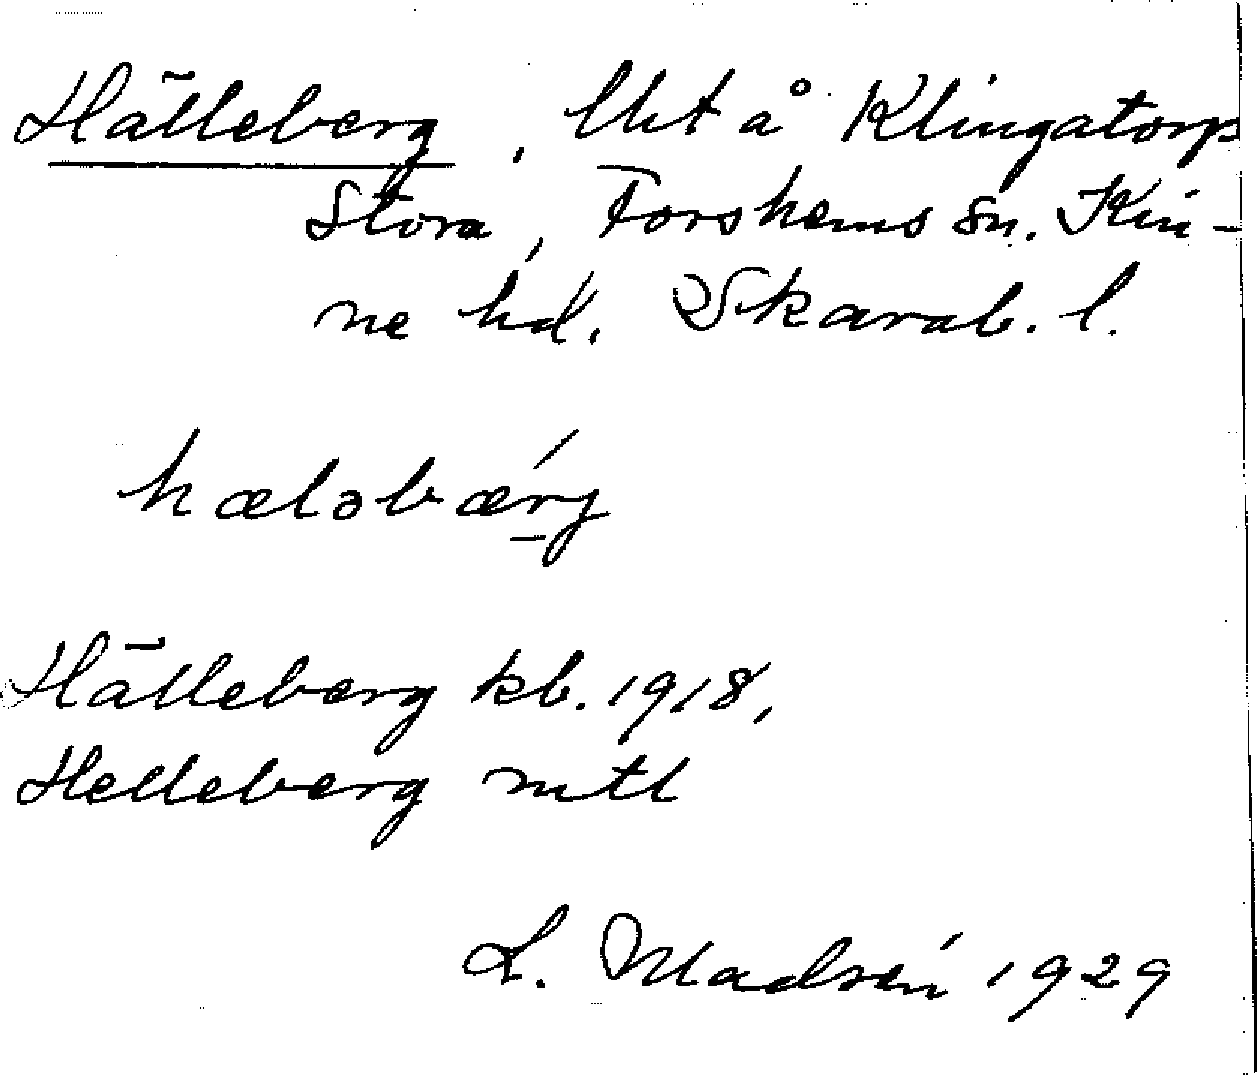 Hälleberg, lht å Klingatorp
Stora, Forshems sn. Kin-
ne hd. Skarab. l.
hæləbærj
Hälleberg kb. 1918,
Helleberg mtl
L. Madsén 1929